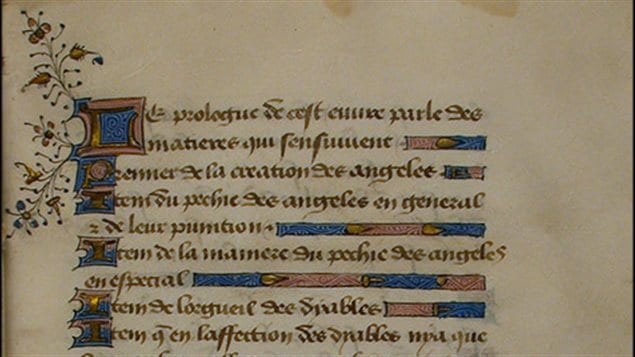 Le prologue de cest euure parle des
matieres qui sensuiuent
Premier de la creation des angeles
Item du pechie des angeles en general
⁊ de leur punition
Item de la maniere du pechie des angeles
en especial
Item de lorgueil des dyables
Item q̄ en laffection des dyables nya que